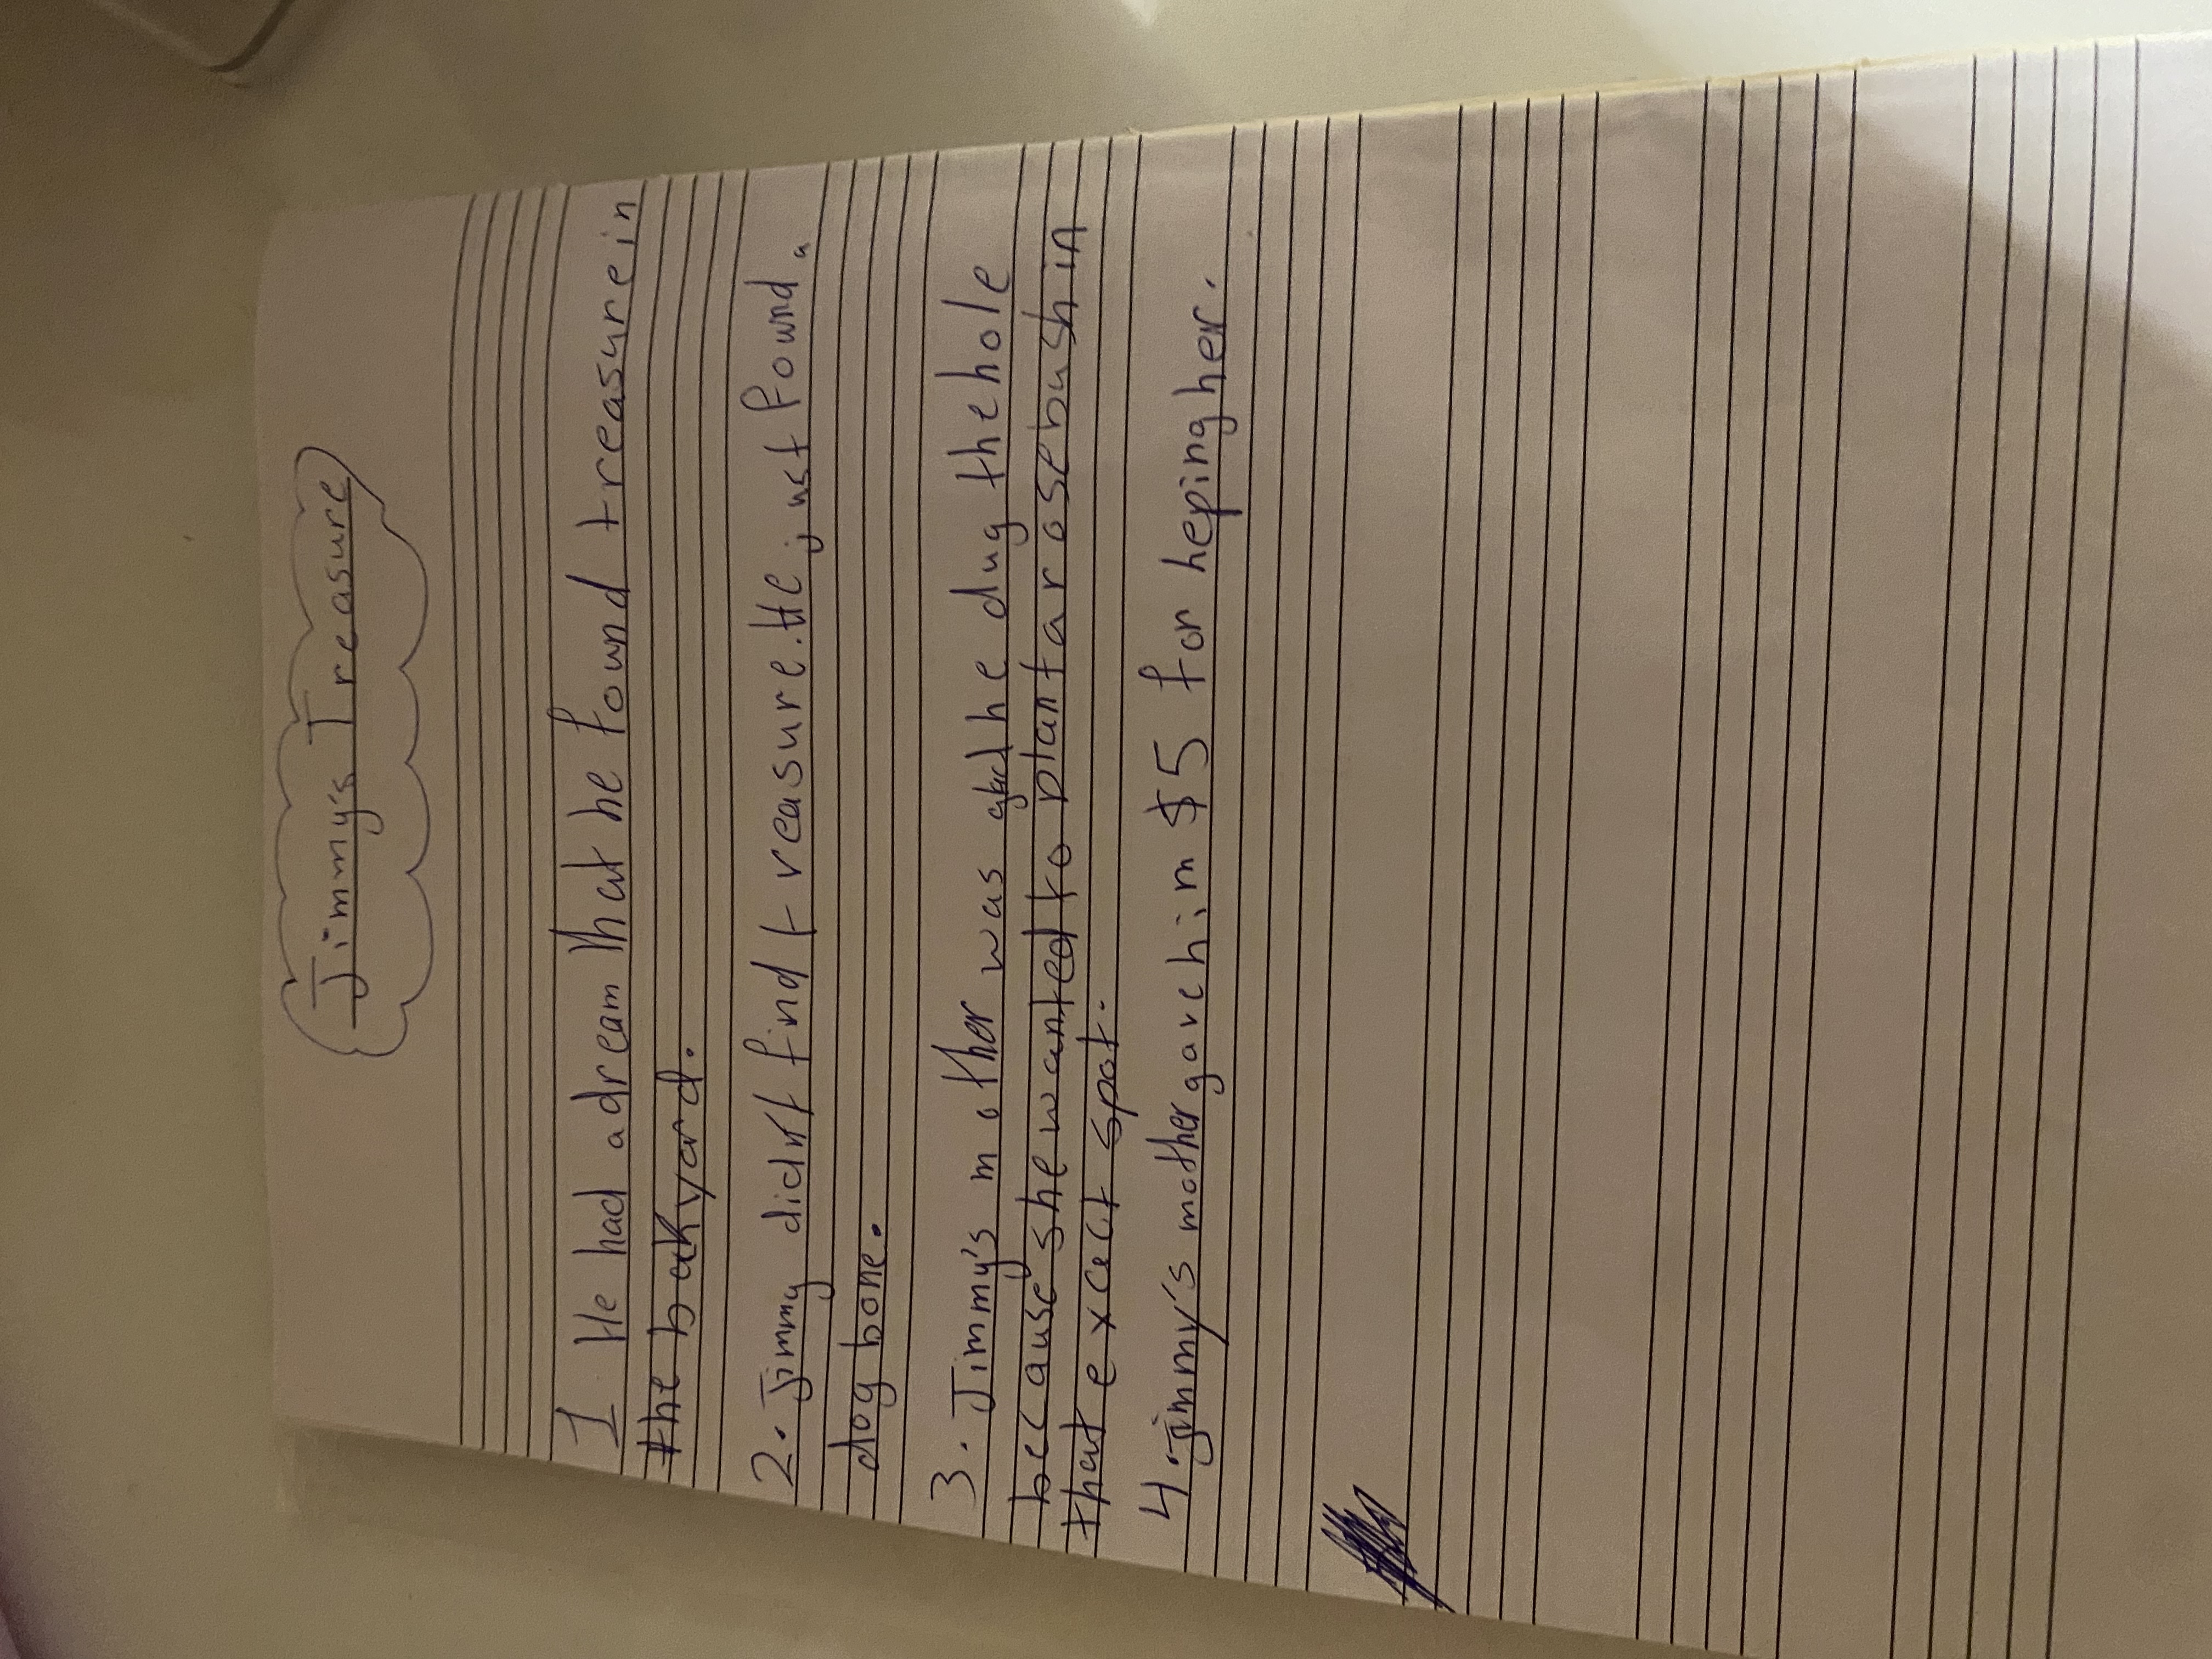 Jimmy's Treasure
1 He had a dream that he found treasure in
the bakyard.
2. Jimmy didn't find treasure. He just found a
dog bone.
3. Jimmy's mother was glad he dug the hole
because she wanted to plant a rosebush in
that exact spot.
4. jimmy's mother gave him $5 for heping her.